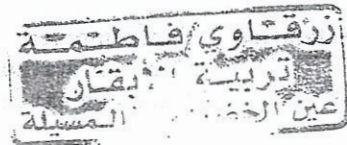 زرقاوي فاطمة
تربية الأبقار
عين الخض المسيلة